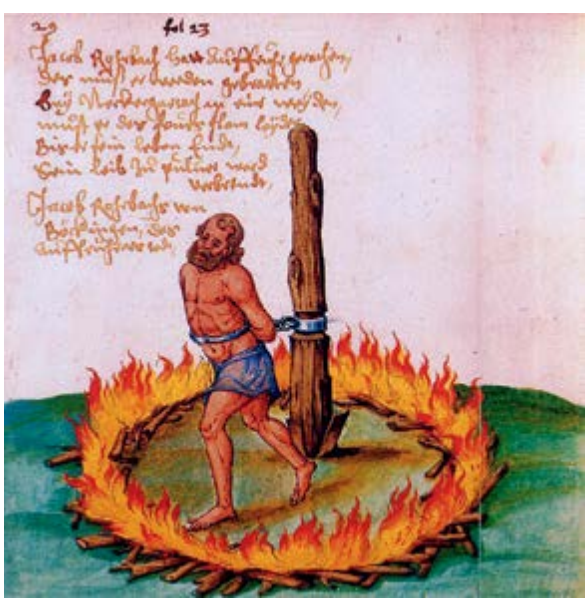 29 fol 13
Jacob Rohrbach hatt auffruhr
der must er werden gebratten
Bey Neckergartach an ein weyden,
must er des feurs flam leyden
Biss er sein leben Endt,
Sein leib zu puluer ward
verbrendt,
Jacob Rohrbachs von
Böckingen, des
auffruhrers tod,